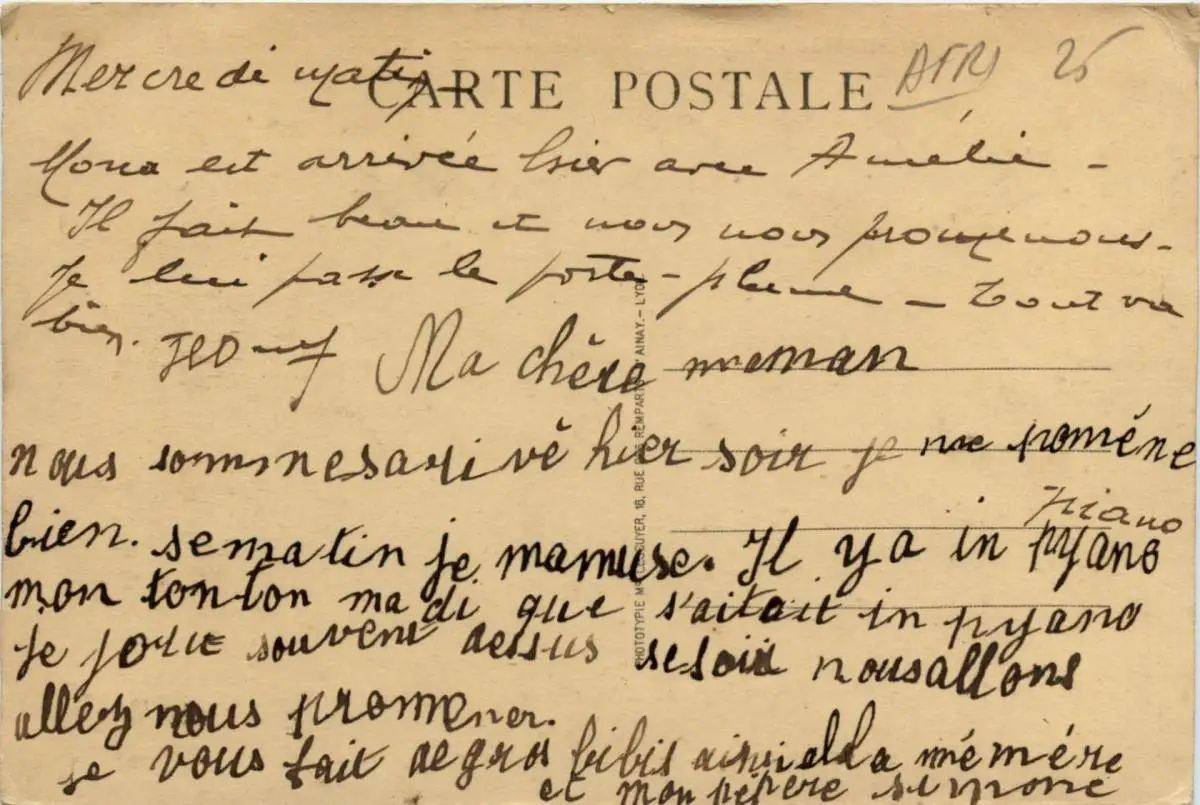 Mercredi matin
CARTE POSTALE
AFR 25
Mona est arrivée hier avec Amélie -
Il fait beau et nous nous promenons -
Je lui passe le porte-plume - Tout va
bien.
Ma chère meman
nous sommesarivé hier soir je me poméne
piano
bien. sematin je mamuse. Il ya in pyano
mon tonton madi que s'aitait in pyano
je joue souvent dessus sesoir nousallons
allez nous promener.
je vous fait degros bibis ainsi alla mémére
et mon pépére simone
PHOTOTYPIE 18, RUE DES REMPARTS AINAY. - LYON